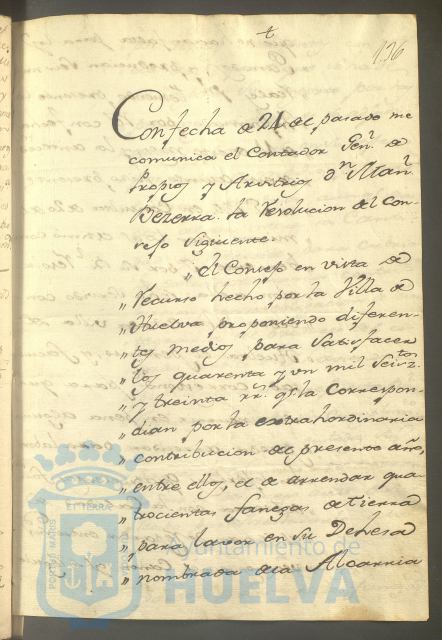 t
136
Con fecha de 24 de pasado me
comunica el Contador Gen.l de
Propios y Arvitrios d.n Man.l
Bezerra la Resolucion del Con-
sejo siguiente
„ El Consejo en vista de
„ recurso hecho por la Villa de
„ Huelva, proponiendo diferen-
„ tes medios para satisfacer
„ los quarenta y un mil Seis.tos
„ y treinta rr.s q.e la correspon-
„ dian por la extrahordinaria
„ contribucion de presente año,
„ entre ellos, el de arrendar qua
„ trocientas fanegas de tierra
„ para lavor en su Dehesa
„ nombrada de la Alcarria
Ayuntamiento de
HUELVA
PORTUS MARIS
ET TERRÆ